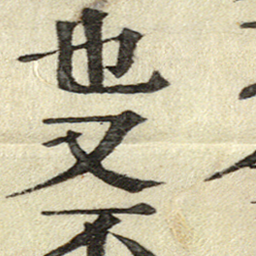 也又不